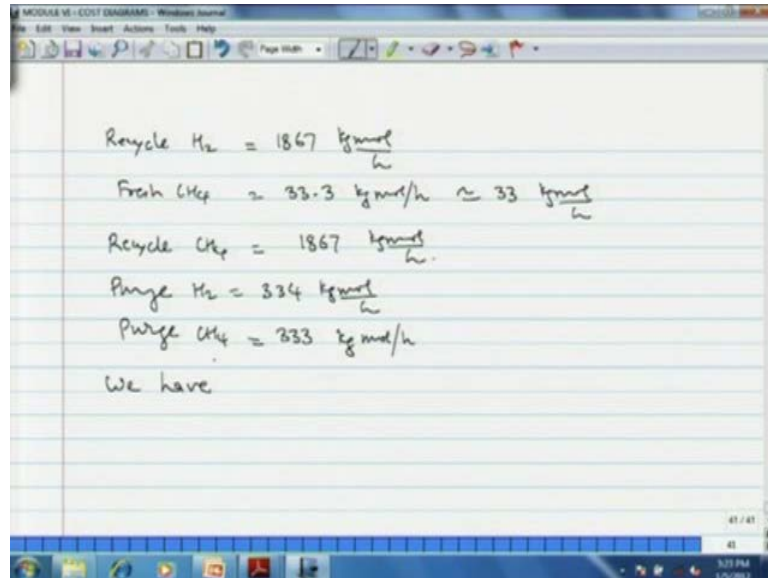 MODULE VI - COST DIAGRAMS - Windows Journal
File Edit View Insert Actions Tools Help
Page Width
Recycle H2 = 1867 kgmol/h
Fresh CH4 = 33.3 kgmol/h ≃ 33 kgmol/h
Recycle CH4 = 1867 kgmol/h.
Purge H2 = 334 kgmol/h
Purge CH4 = 333 kgmol/h
We have
41 / 41
41
3:23 PM
1/5/2012